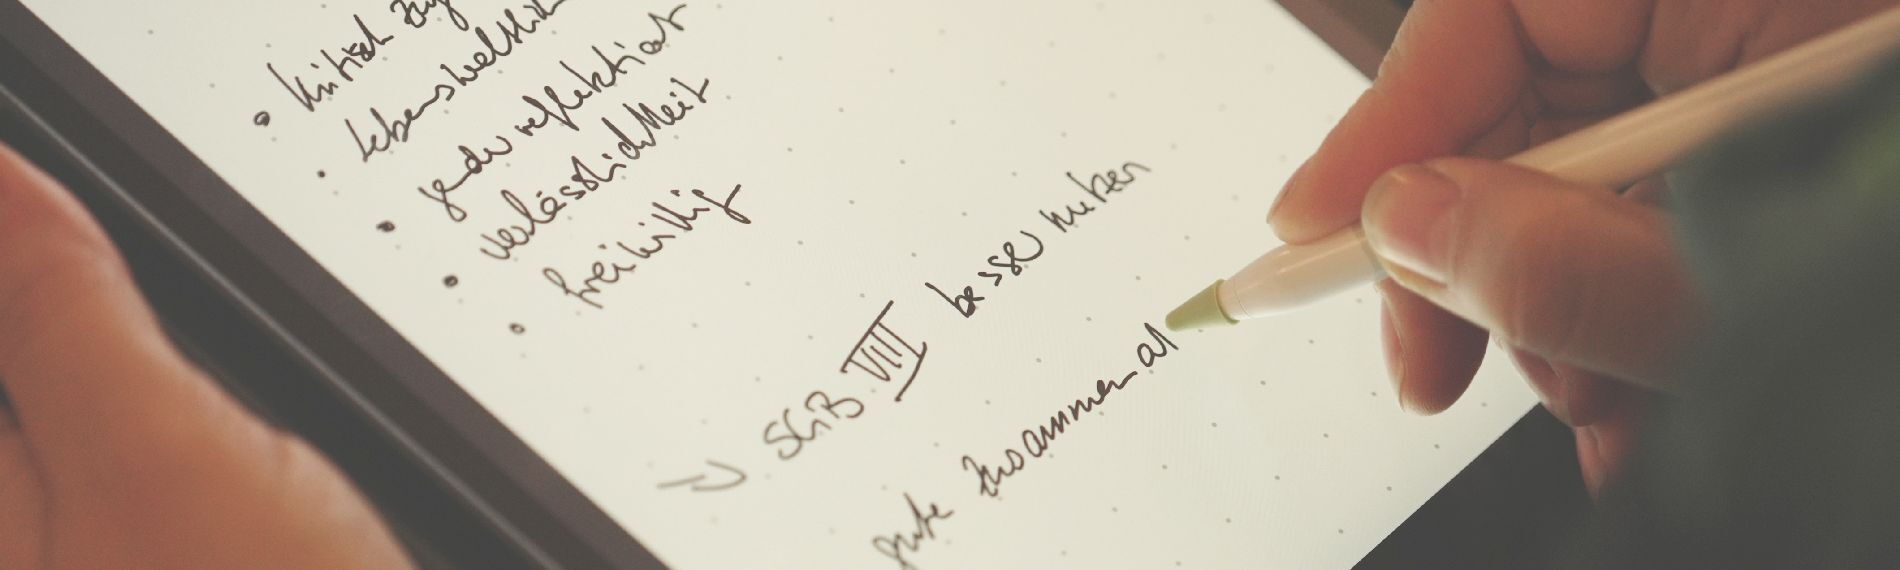 • kritisch
• lebensweltlich
• gender reflektiert
• verlässlichkeit
• freiwillig
→ SGB VIII besser nutzen
gute Zusammena